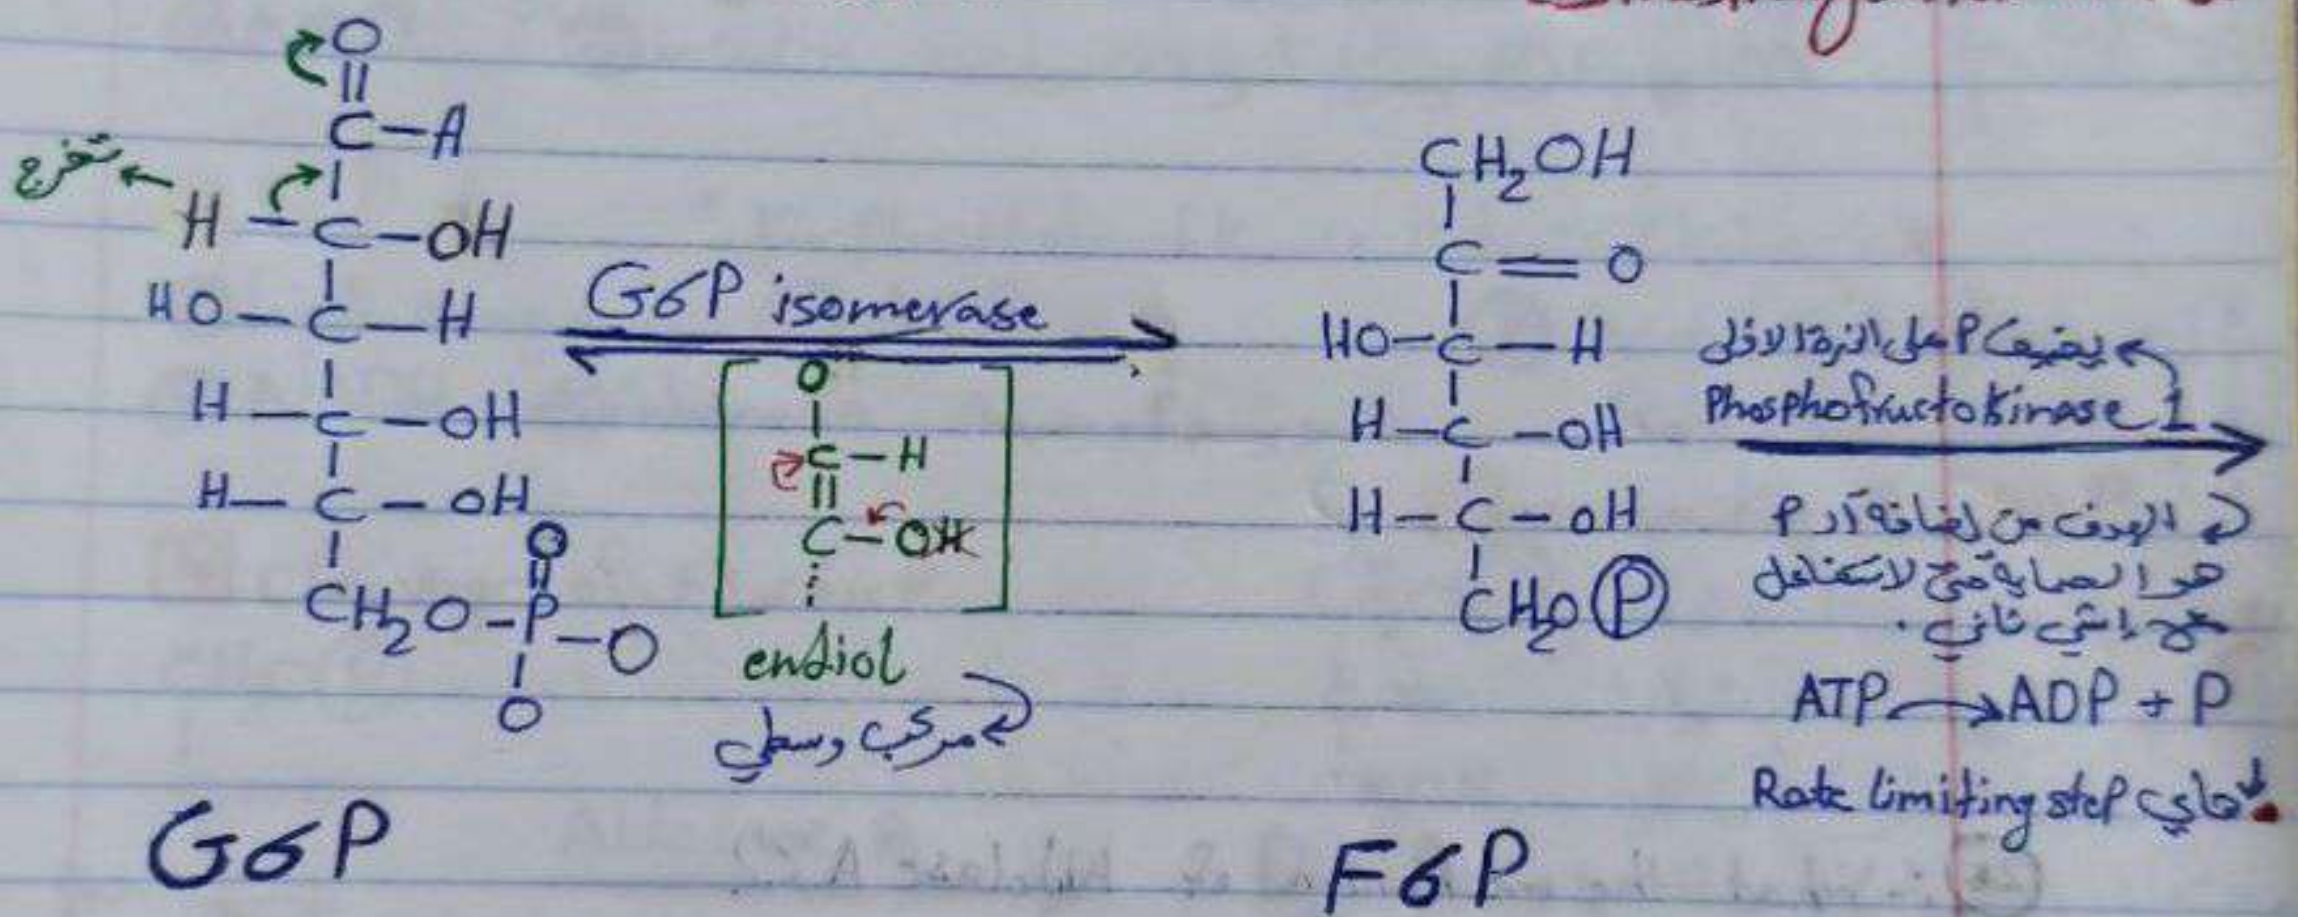 O
C-A
تخرج
H-C-OH
HO-C-H
H-C-OH
H-C-OH
CH2O-P-O
O
O
G6P
G6P isomerase
O
C-H
C-OH
endiol
مركب وسطي
CH2OH
C=O
HO-C-H
H-C-OH
H-C-OH
CH2O P
F6P
يضيف P على الذرة الاولى
Phosphofructokinase 1
الهدف من إضافة ال P
هو الحماية حتى لا تتفاعل
مع إشي ثاني.
ATP → ADP + P
هاي Rate limiting step